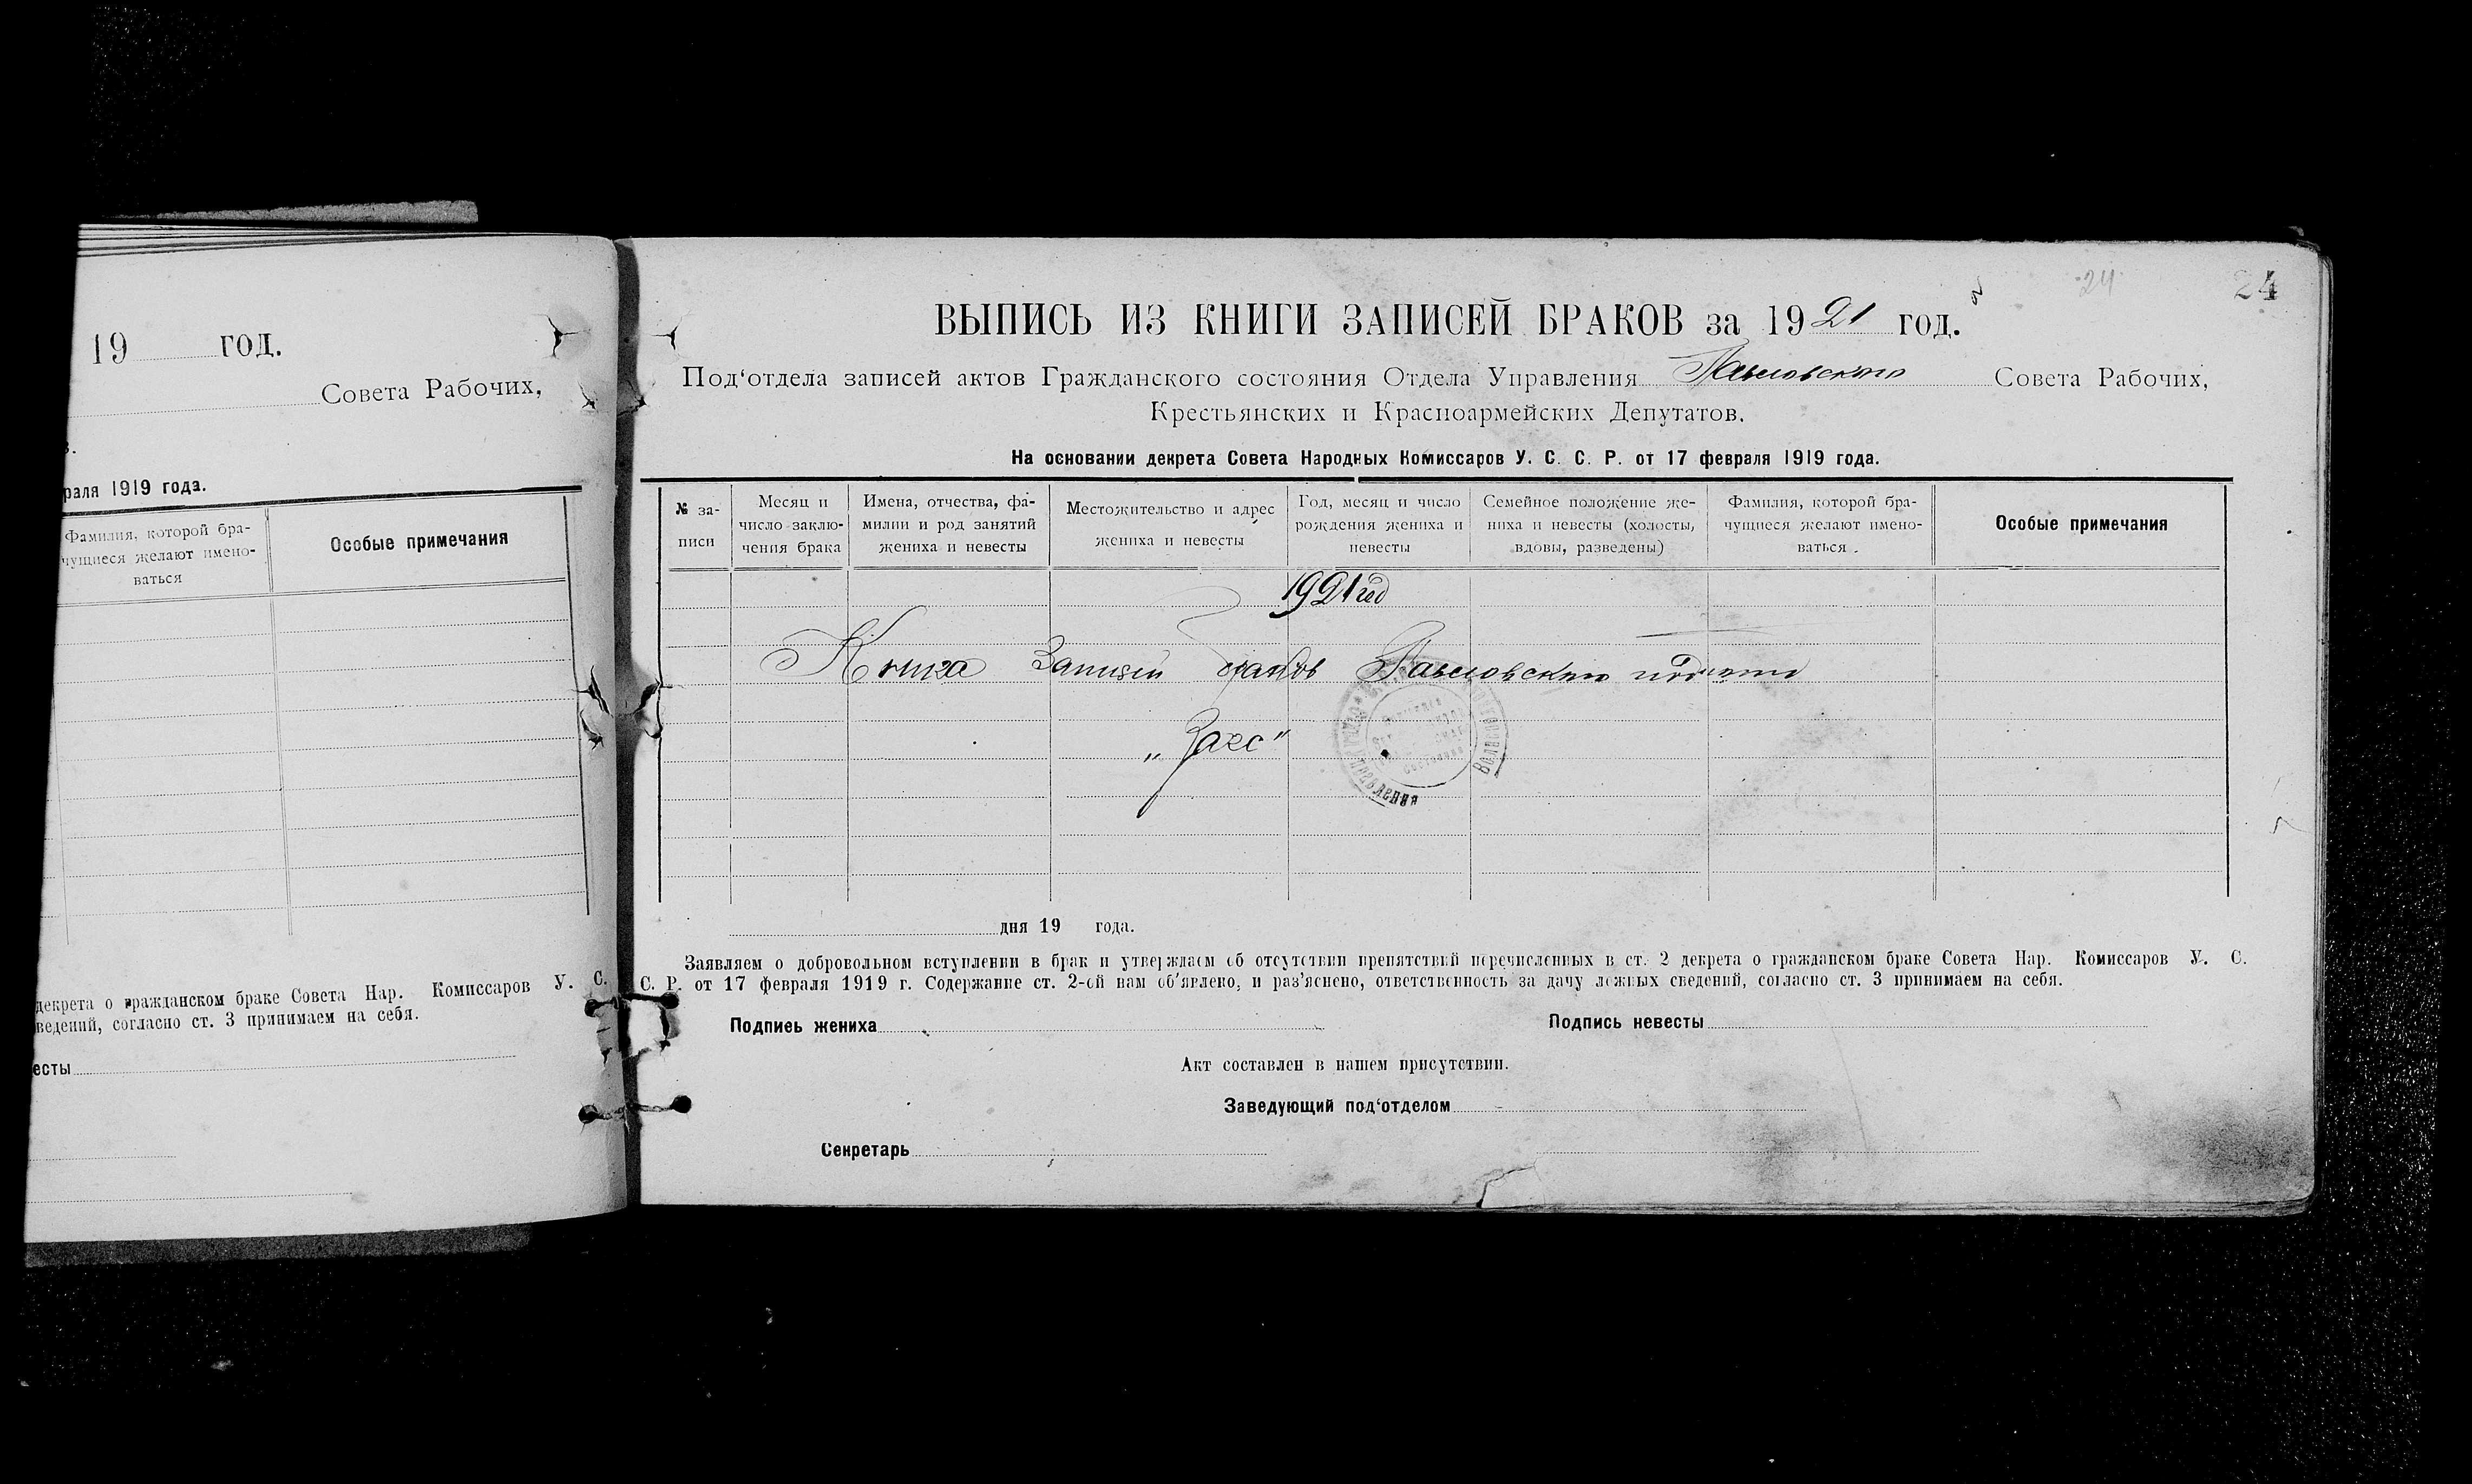 19 год.
Совета Рабочих,
в.
раля 1919 года.
Фамилия, которой бра-
чущиеся желают имено-
ваться
Особые примечания
декрета о гражданском браке Совета Нар. Комиссаров У. С.
ведений, согласно ст. 3 принимаем на себя.
есты
24 24
ВЫПИСЬ ИЗ КНИГИ ЗАПИСЕЙ БРАКОВ за 1921 год.
Под‘отдела записей актов Гражданского состояния Отдела Управления Павловского Совета Рабочих,
Крестьянских и Красноармейских Депутатов.
На основании декрета Совета Народных Комиссаров У. С. С. Р. от 17 февраля 1919 года.
№ за-
писи
Месяц и
число заклю-
чения брака
Имена, отчества, фа-
милии и род занятий
жениха и невесты
Местожительство и адрес
жениха и невесты
Год, месяц и число
рождения жениха и
невесты
Семейное положение же-
ниха и невесты (холосты,
вдовы, разведены)
Фамилия, которой бра-
чущиеся желают имено-
ваться
Особые примечания
1921 год
Книга Записей браков Павловского
„Загс"
дня 19 года.
Заявляем о добровольном вступлении в брак и утверждаем об отсутствии препятствий перечисленных в ст. 2 декрета о гражданском браке Совета Нар. Комиссаров У. С.
С. Р. от 17 февраля 1919 г. Содержание ст. 2-ой нам об'явлено, и раз'яснено, ответственность за дачу ложных сведений, согласно ст. 3 принимаем на себя.
Подпись жениха Подпись невесты
Акт составлен в нашем присутствии.
Заведующий под‘отделом
Секретарь